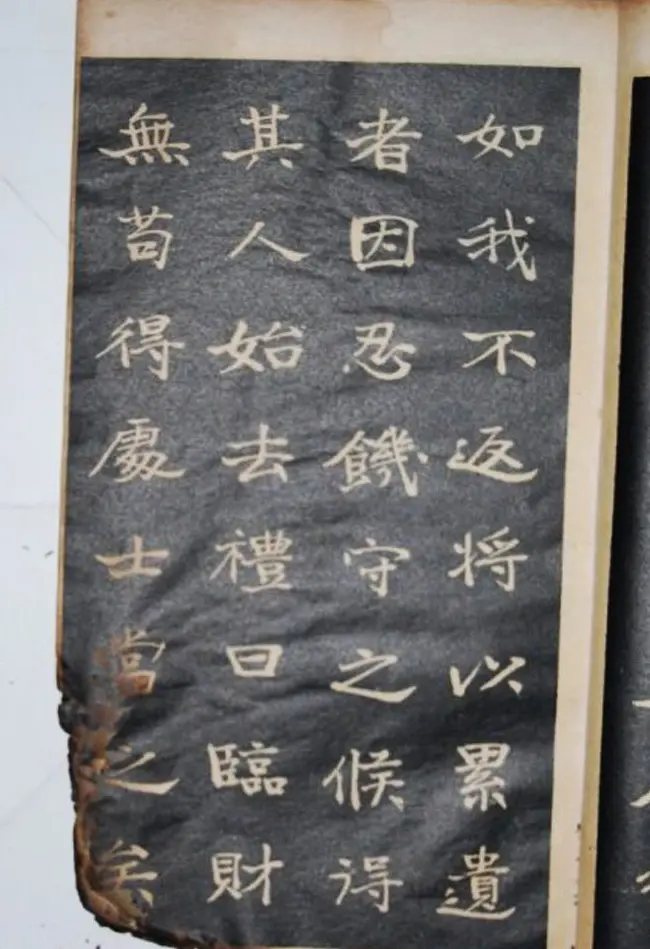 如我不返将以累遺
者因忍饑守之候得
其人始去禮曰臨財
無苟得處士當之矣